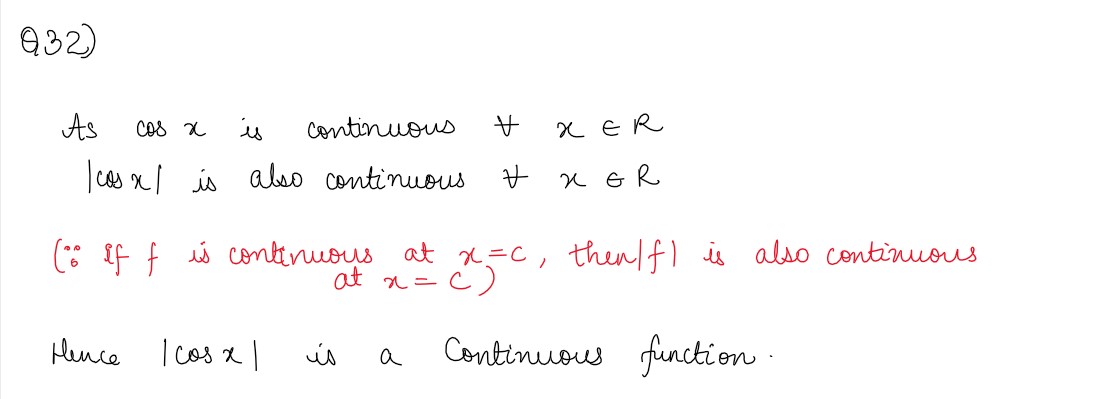 Q32)
As cos x is continuous ∀ x ∈ R
|cos x| is also continuous ∀ x ∈ R
(∵ If f is continuous at x=c, then |f| is also continuous
at x = c)
Hence |cos x| is a Continuous function.